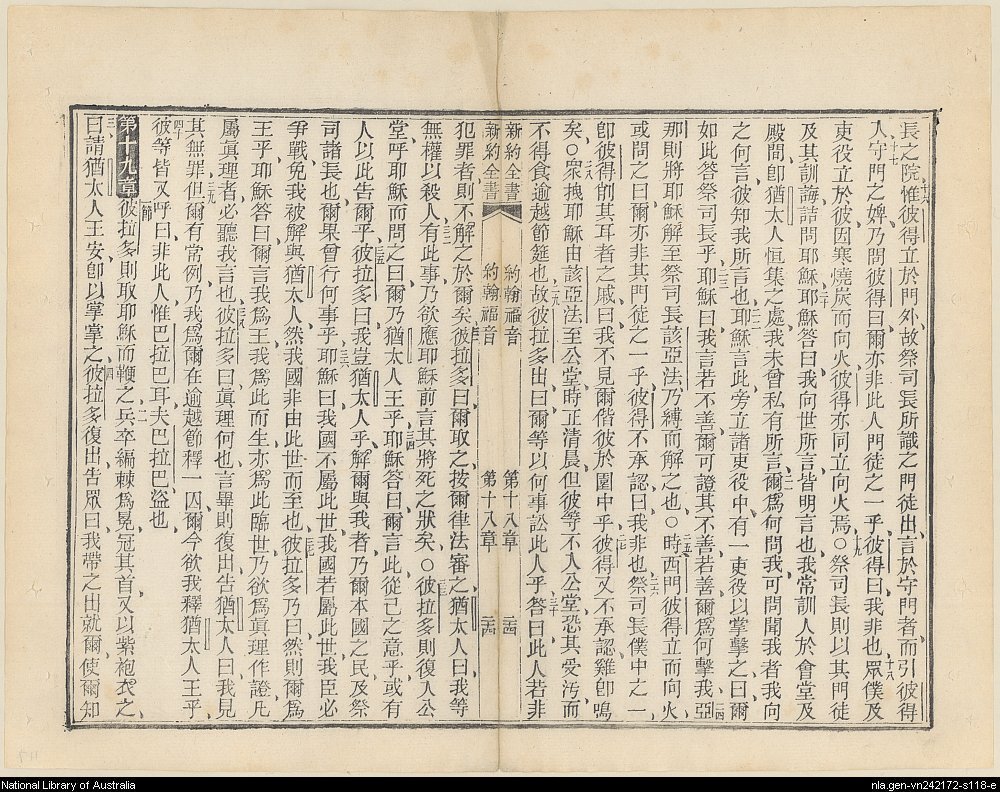 長之院惟彼得立於門外故祭司長所識之門徒出言於守門者而引彼得
入守門之婢乃問彼得曰爾亦非此人門徒之一乎彼得曰我非也眾僕及
吏役立於彼因寒燒炭而向火彼得亦同立向火焉○祭司長則以其門徒
及其訓誨詰問耶穌耶穌答曰我向世所言皆明言也我常訓人於會堂及
殿間卽猶太人恒集之處我未曾私有所言爾爲何問我可問聞我者我向
之何言彼知我所言也耶穌言此旁立諸吏役中有一吏役以掌擊之曰爾
如此答祭司長乎耶穌曰我言若不善爾可證其不善若善爾爲何擊我亞
那則將耶穌解至祭司長該亞法乃縛而解之也○時西門彼得立而向火
或問之曰爾亦非其門徒之一乎彼得不承認曰我非也祭司長僕中之一
卽彼得削其耳者之戚曰我不見爾偕彼於園中乎彼得又不承認雞卽鳴
矣○眾拽耶穌由該亞法至公堂時正清晨但彼等不入公堂恐其受污而
不得食逾越節筵也故彼拉多出曰爾等以何事訟此人乎答曰此人若非
新約全書 約翰福音 第十八章 二四
新約全書 約翰福音 第十八章 二四
犯罪者則不解之於爾矣彼拉多曰爾取之按爾律法審之猶太人曰我等
無權以殺人有此事乃欲應耶穌前言其將死之狀矣○彼拉多則復入公
堂呼耶穌而問之曰爾乃猶太人王乎耶穌答曰爾言此從己之意乎或有
人以此告爾乎彼拉多曰我豈猶太人乎解爾與我者乃爾本國之民及祭
司諸長也爾果曾行何事乎耶穌曰我國不屬此世我國若屬此世我臣必
爭戰免我被解與猶太人然我國非由此世而至也彼拉多乃曰然則爾爲
王乎耶穌答曰爾言我爲王我爲此而生亦爲此臨世乃欲爲眞理作證凡
屬眞理者必聽我言也彼拉多曰眞理何也言畢則復出告猶太人曰我見
其無罪但爾有常例乃我爲爾在逾越節釋一囚爾今欲我釋猶太人王乎
彼等皆又呼曰非此人惟巴拉巴耳夫巴拉巴盜也
第十九章彼拉多則取耶穌而鞭之兵卒編棘爲冕冠其首又以紫袍衣之
曰請猶太人王安卽以掌掌之彼拉多復出告眾曰我帶之出就爾使爾知
National Library of Australia
nla.gen-vn242172-s118-e